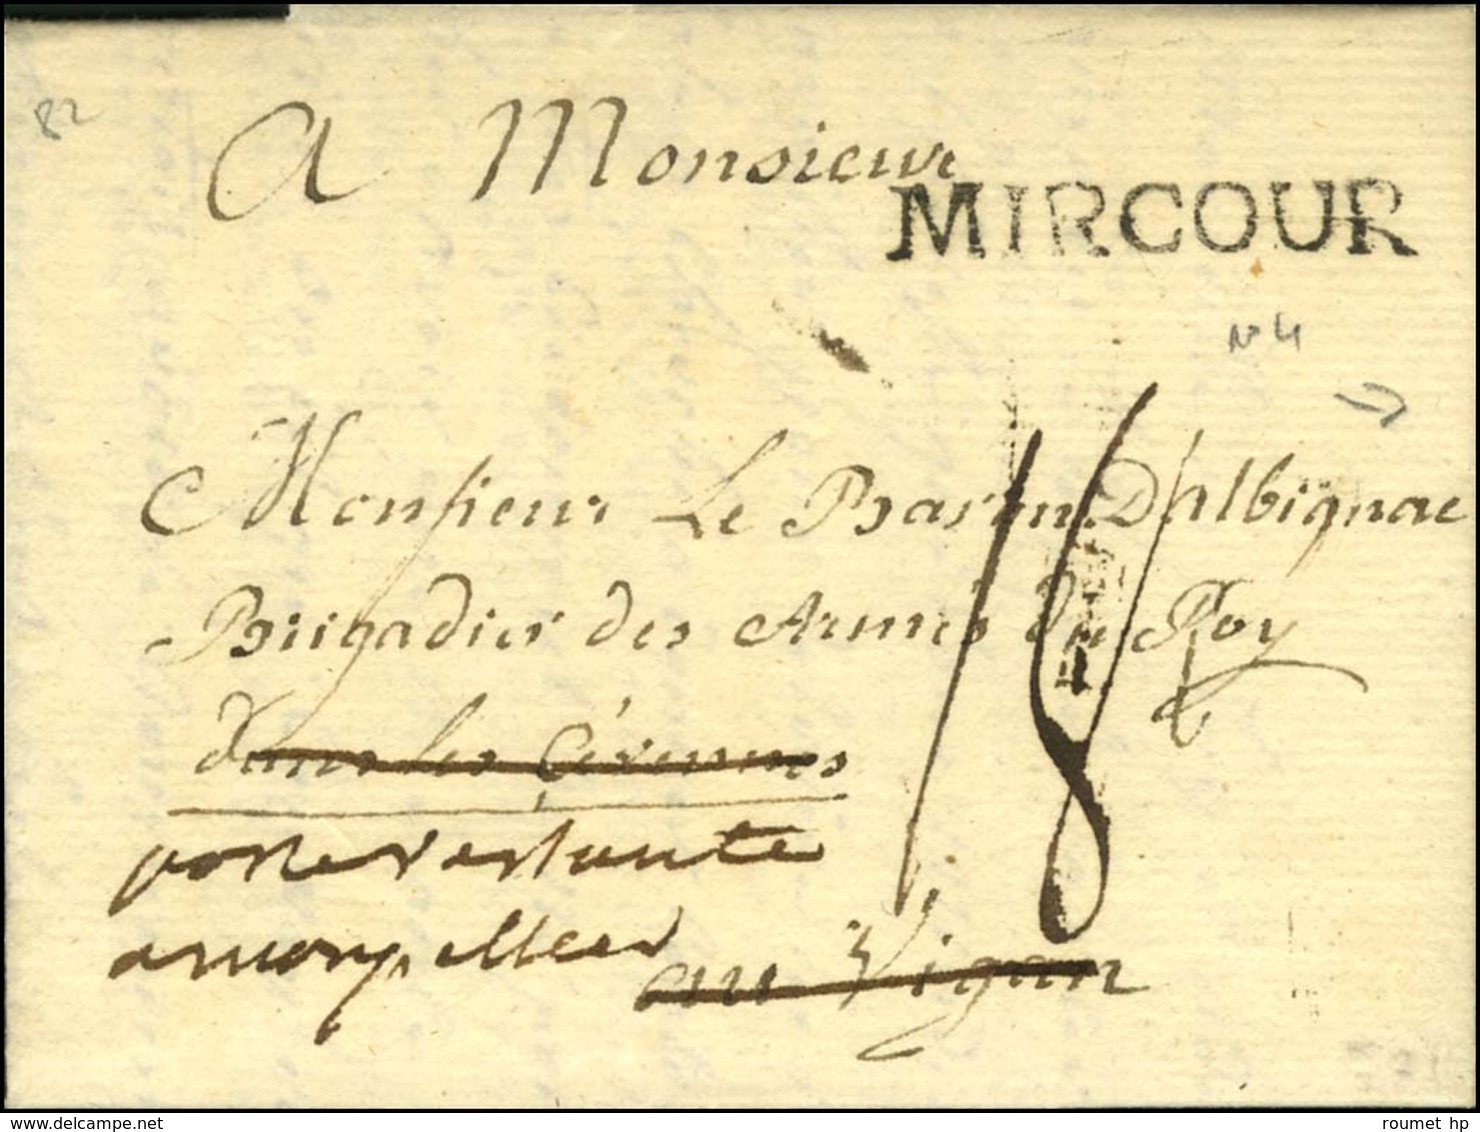 82
A Monsieur
MIRCOUR
N° 4
Monsieur Le Baron D'Albignac
Brigadier des Armés du Roy
dans les Cévennes
poste restante
a monpellier
au Vigan
18
delcampe.net
roumet hp